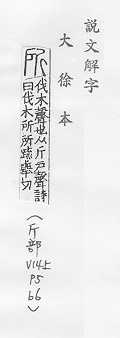 說文解字
大徐本
所
伐木聲也从斤戶聲詩
曰伐木所所疏舉切
(斤部
V14上
P5
b6)